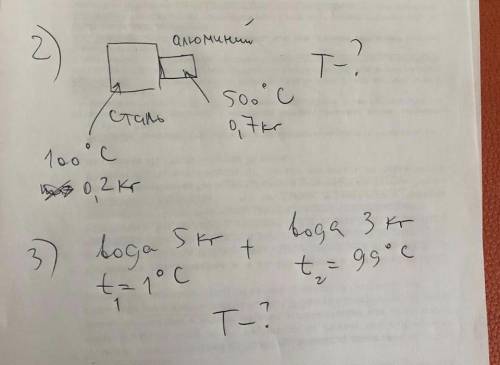 2)
алюминий
T-?
сталь
500°C
0,7кг
100°C
0,2кг
3)
вода 5кг + вода 3кг
t₁=1°C t₂=99°C
T-?